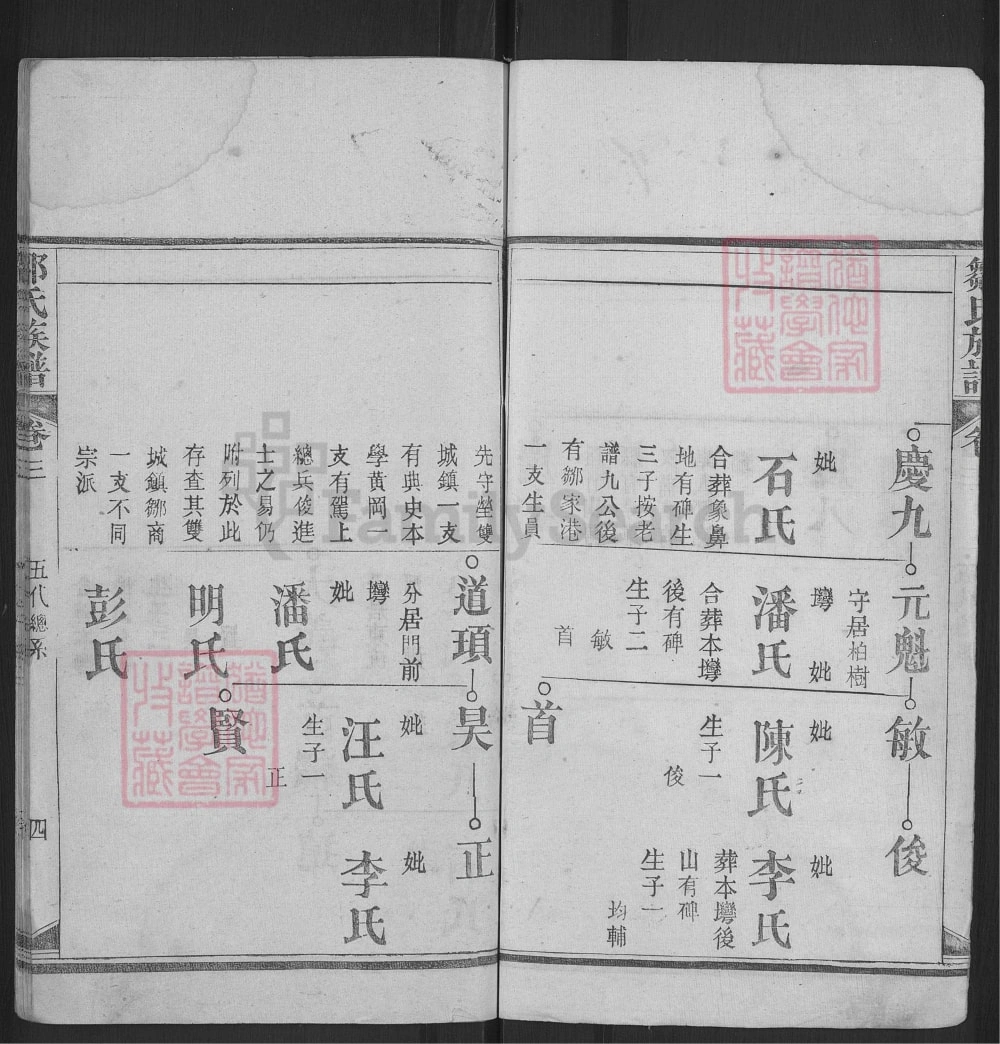 鄒氏族譜
慶九
妣
石氏
合葬象鼻
地有碑生
三子按老
譜九公後
有鄒家港
一支生員
元魁
守居柏樹
壪 妣
潘氏
合葬本壪
後有碑
生子二
敏
首
敏
妣
陳氏
生子一
俊
首
俊
妣
李氏
葬本壪後
山有碑
生子一
均輔
先守塋雙
城鎮一支
有典史本
學黃岡
支有駕上
總兵俊進
士之易仍
附列於此
存查其雙
城鎮鄒商
一支不同
宗派
道頊
分居門前
壪
妣
潘氏
明氏
彭氏
昊
妣
汪氏
生子一
正
賢
正
妣
李氏
鄒氏族譜
卷三
五代總系
四
FamilySearch